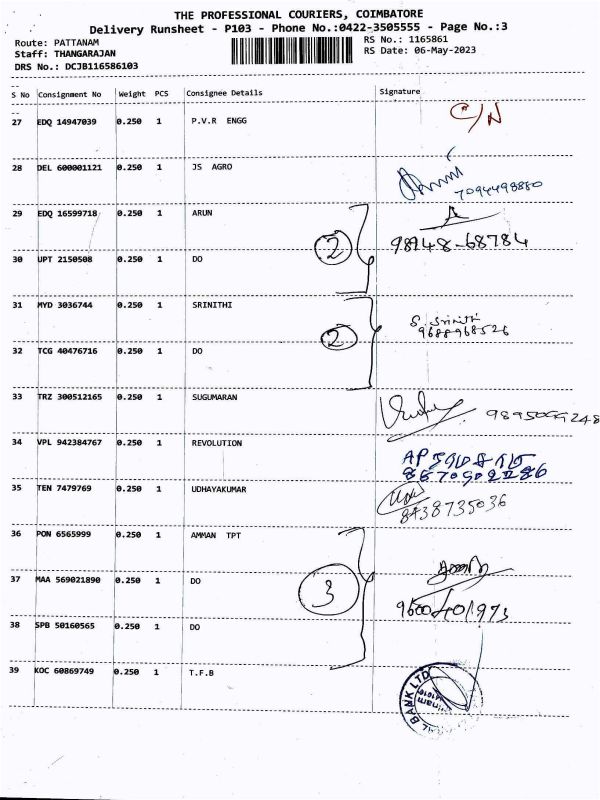 THE PROFESSIONAL COURIERS, COIMBATORE
Delivery Runsheet - P103 - Phone No.:0422-3505555 - Page No.:3
Route: PATTANAM
RS No.: 1165861
Staff: THANGARAJAN
RS Date: 06-May-2023
DRS No.: DCJB116586103
S No Consignment No Weight PCS Consignee Details Signature
27 EDQ 14947039 0.250 1 P.V.R ENGG C/N
28 DEL 600001121 0.250 1 JS AGRO
7094498880
29 EDQ 16599718 0.250 1 ARUN
2 98948-68784
30 UPT 2150508 0.250 1 DO
31 MYD 3036744 0.250 1 SRINITHI
S. Srinithi
2 9688968526
32 TCG 40476716 0.250 1 DO
33 TRZ 300512165 0.250 1 SUGUMARAN
34 VPL 942384767 0.250 1 REVOLUTION
35 TEN 7479769 0.250 1 UDHAYAKUMAR
8438735036
36 PON 6565999 0.250 1 AMMAN TPT
37 MAA 569021890 0.250 1 DO
3 9600401973
38 SPB 50160565 0.250 1 DO
39 KOC 60869749 0.250 1 T.F.B
BANK LTD